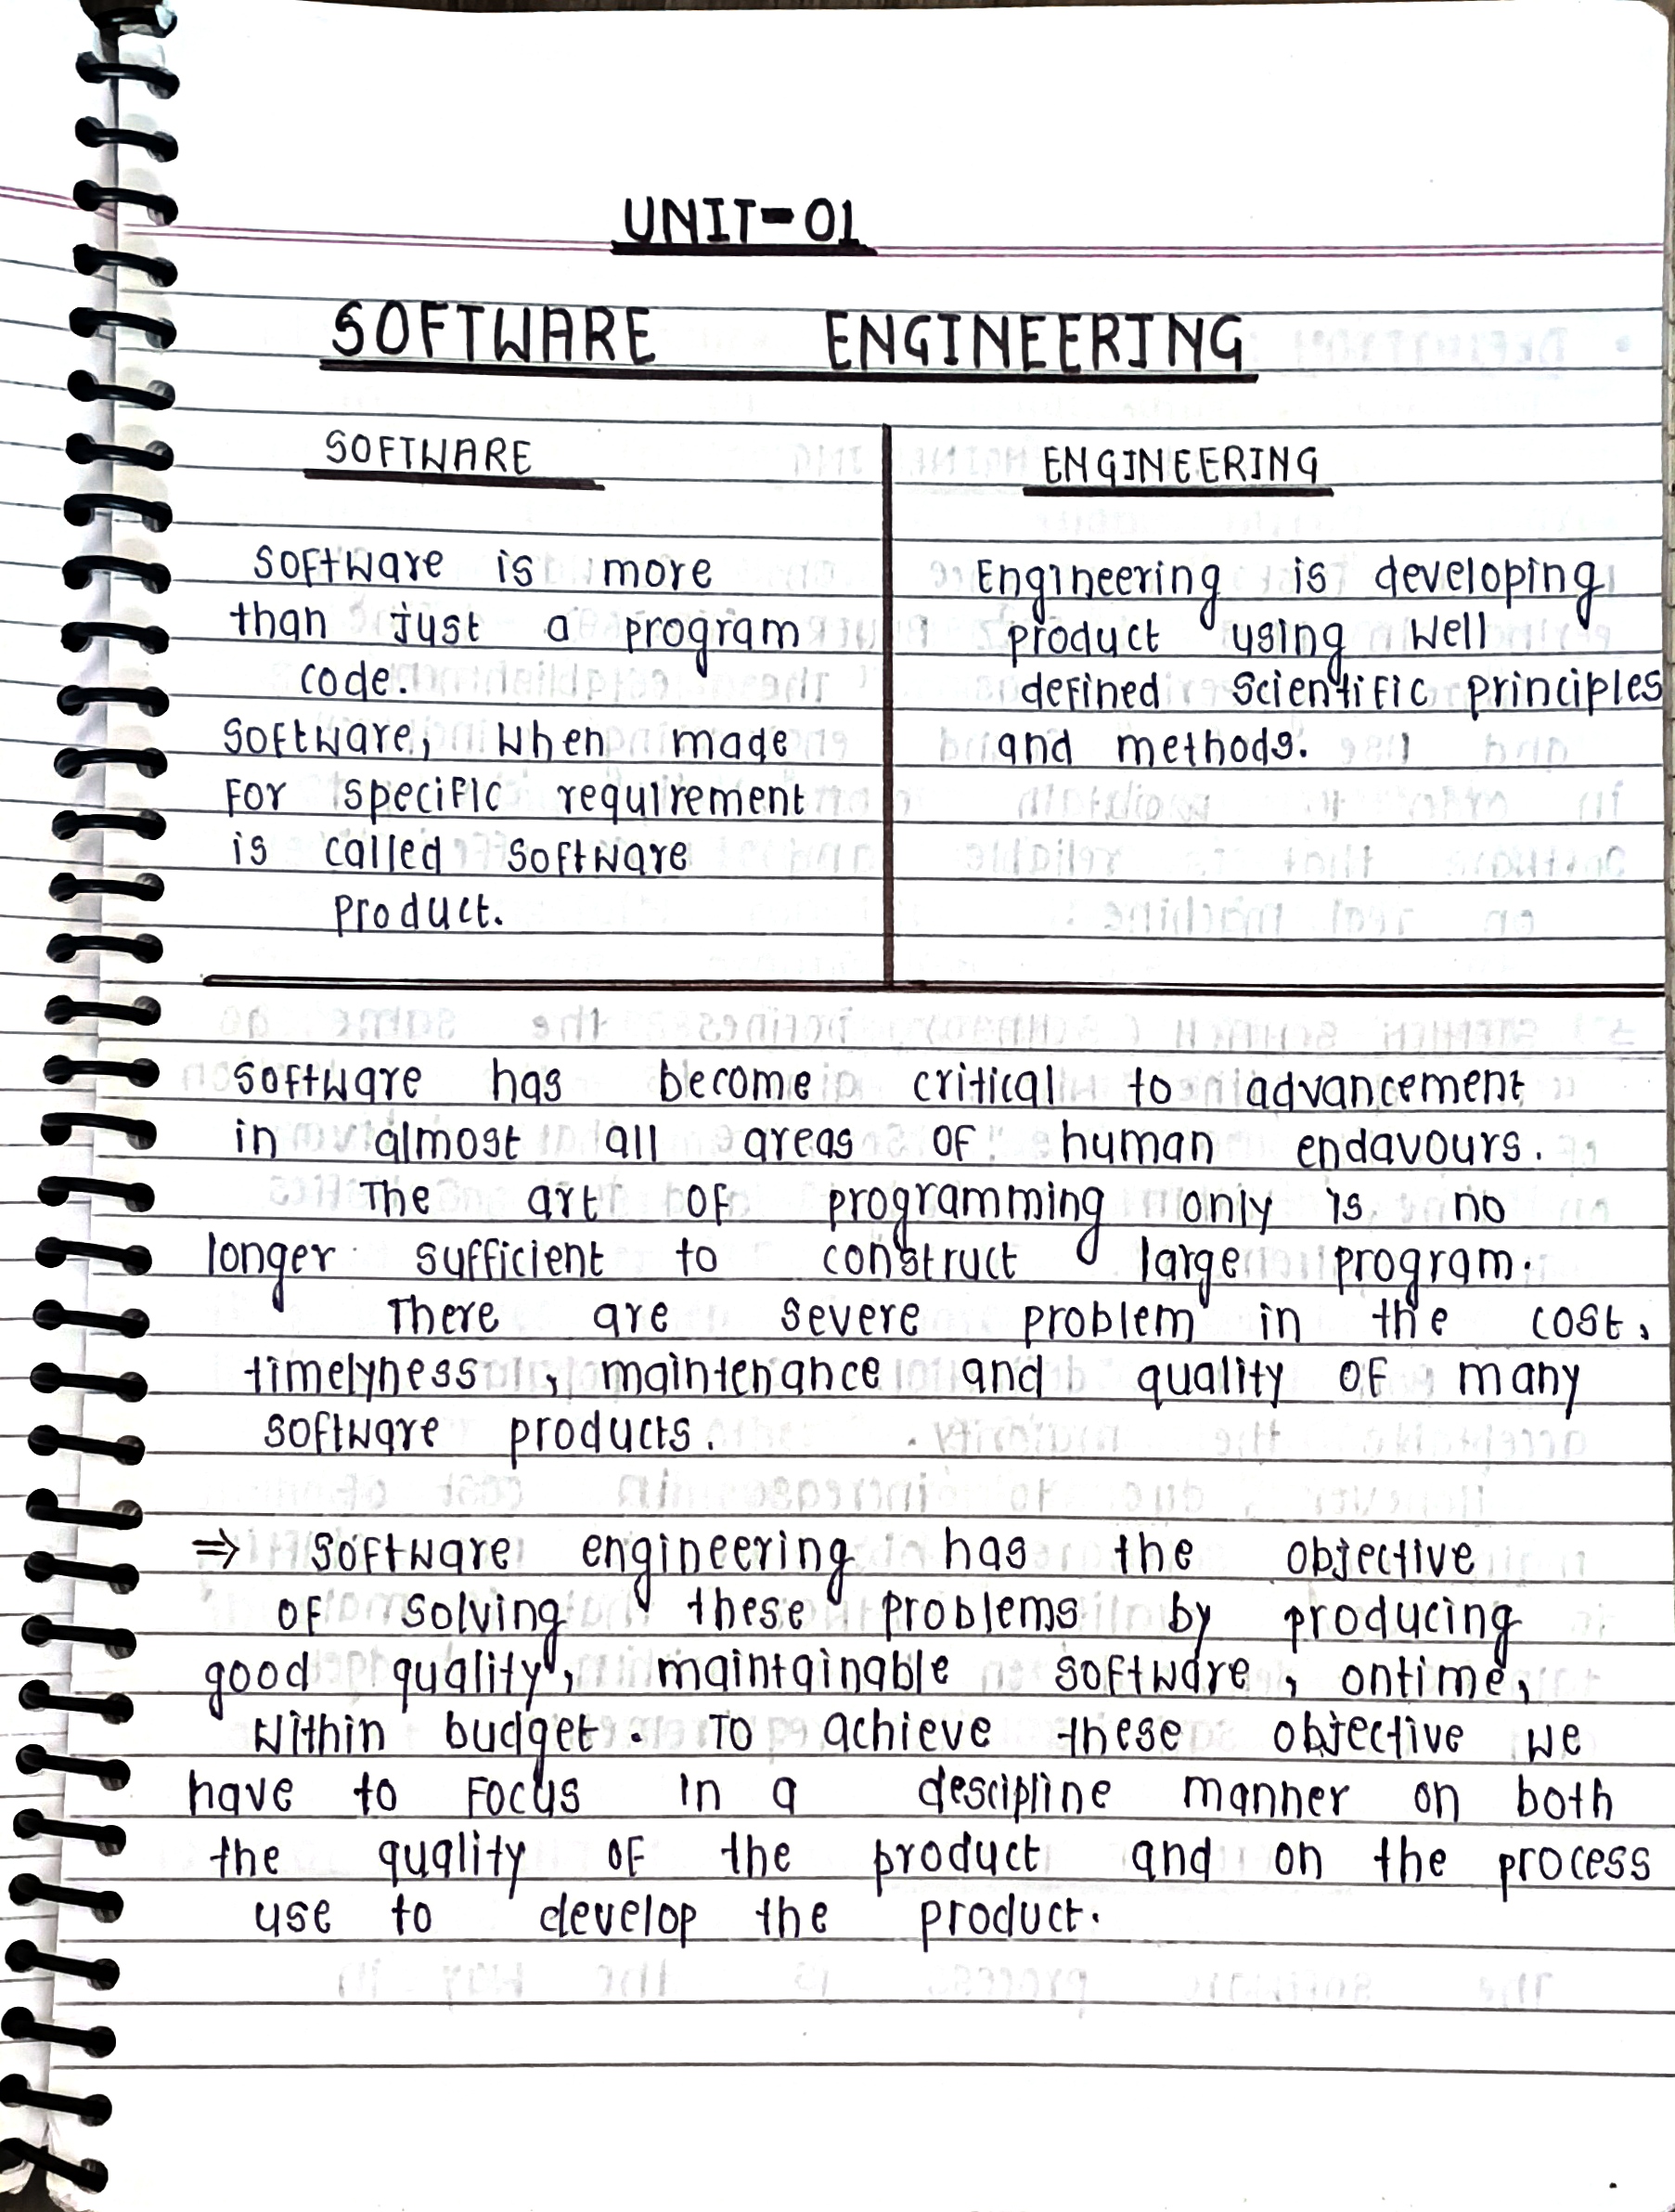 UNIT-01
SOFTWARE ENGINEERING
SOFTWARE
Software is more
than just a program
code.
Software, when made
for specific requirement
is called software
product.
ENGINEERING
Engineering is developing
product using well
defined scientific principles
and methods.
Software has become critical to advancement
in almost all areas of human endavours.
The art of programming only is no
longer sufficient to construct large program.
There are severe problem in the cost,
timelyness, maintenance and quality of many
software products.
⇒ Software engineering has the objective
of solving these problems by producing
good quality, maintainable software, ontime,
within budget. To achieve these objective we
have to focus in a descipline manner on both
the quality of the product and on the process
use to develop the product.